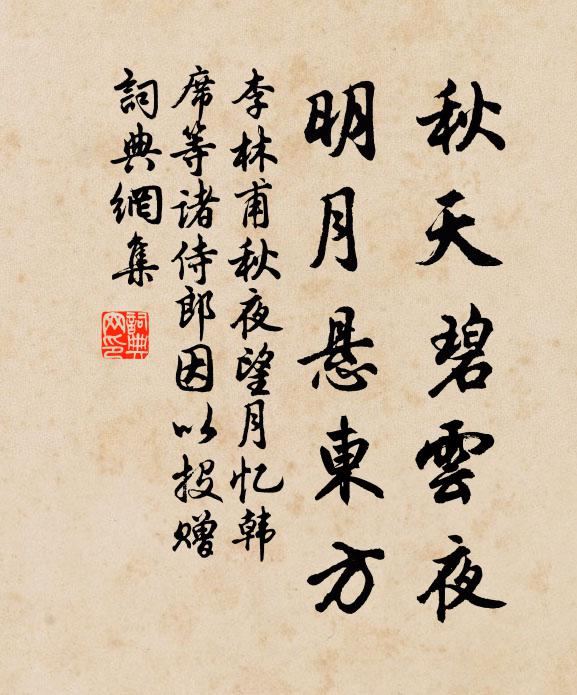 秋天碧雲夜
明月懸東方
李林甫秋夜望月忆韩
席等诸侍郎因以投赠
詞典網集
詞典網印